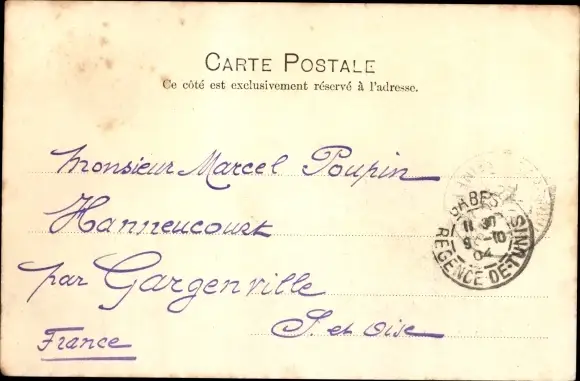 CARTE POSTALE
Ce côté est exclusivement réservé à l'adresse.
Monsieur Marcel Poupin
Hanneucourt
par Gargenville
S. et Oise
France
GABES
11 30
9 -10
04
REGENCE DE TUNIS